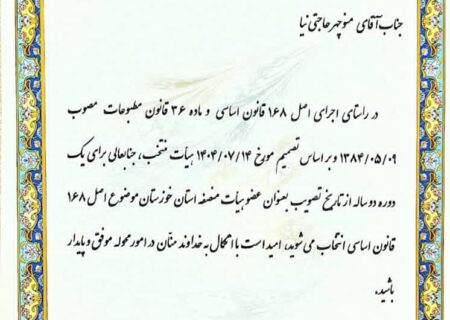 جناب آقای منوچهر حاجتی نیا
در راستای اجرای اصل ۱۶۸ قانون اساسی و ماده ۳۶ قانون مطبوعات مصوب
۱۳۸۴/۰۵/۰۹ و بر اساس تصمیم مورخ ۱۴۰۴/۰۷/۱۴ هیأت منتخب، جنابعالی برای یک
دوره دو ساله از تاریخ تصویب بعنوان عضو هیأت منصفه استان خوزستان موضوع اصل ۱۶۸
قانون اساسی انتخاب می شوید، امید است با اتکال به خداوند منّان در امور محوله موفق و پایدار
باشید.